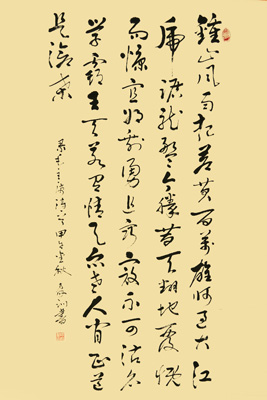 鍾山風雨起蒼黄百萬雄師過大江
虎踞龍盤今勝昔天翻地覆慨
而慷宜將剩勇追窮寇不可沽名
學霸王天若有情天亦老人間正道
是滄桑
录毛主席詩甲午金秋書